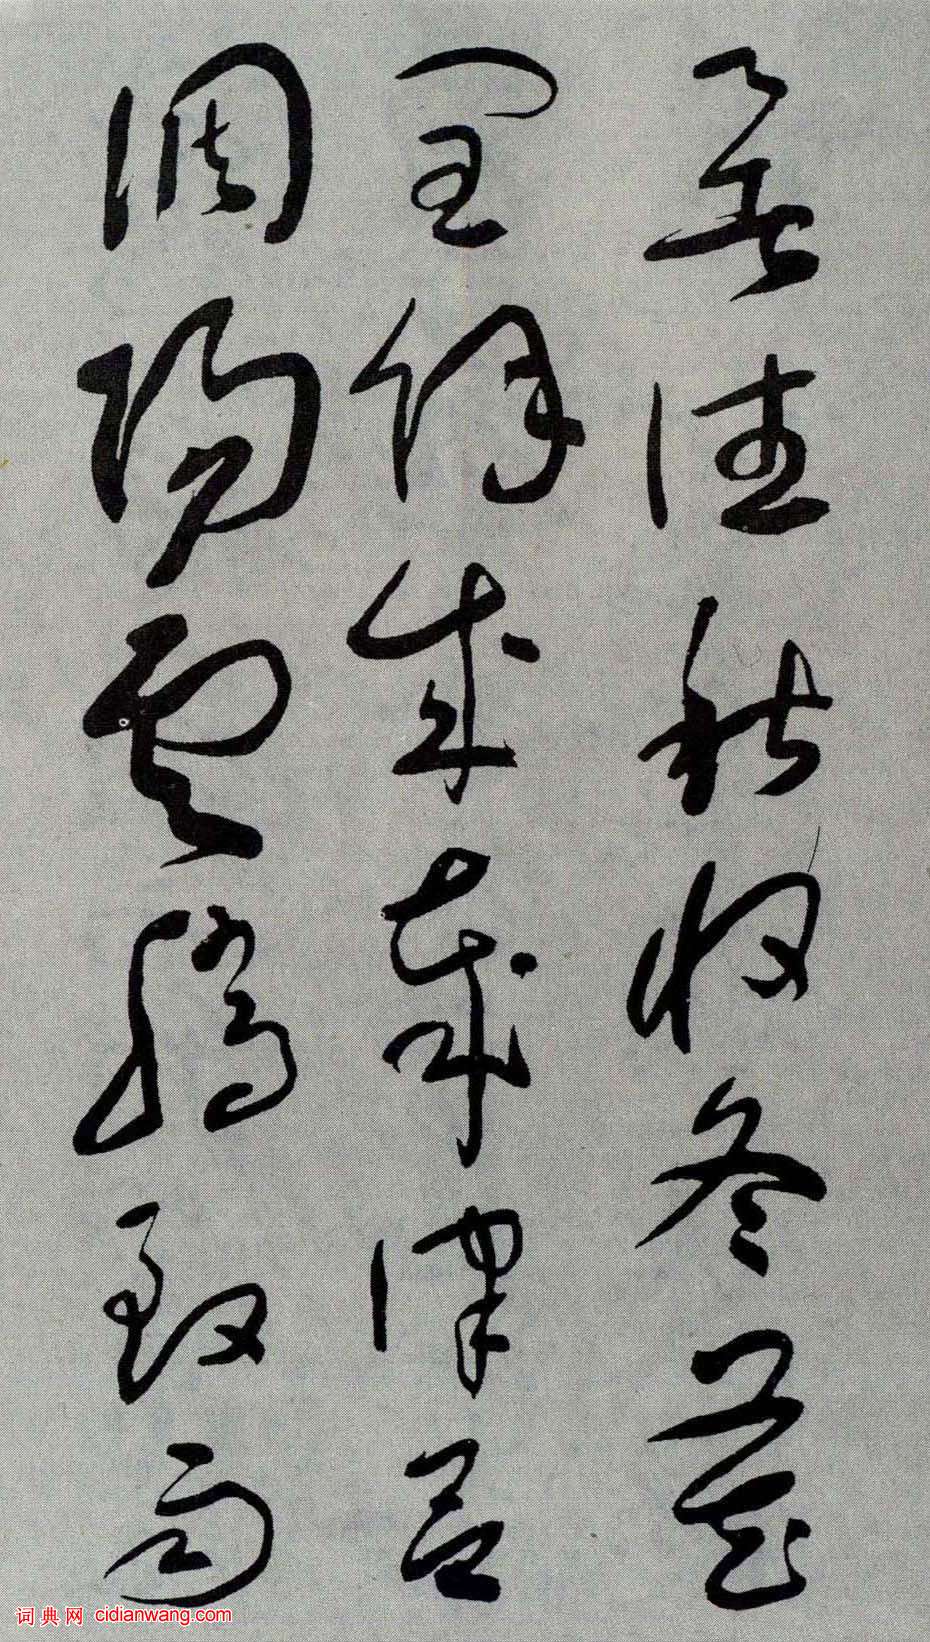 暑往秋收冬藏
閏餘成歲律呂
調陽雲騰致雨
词典网 cidianwang.com